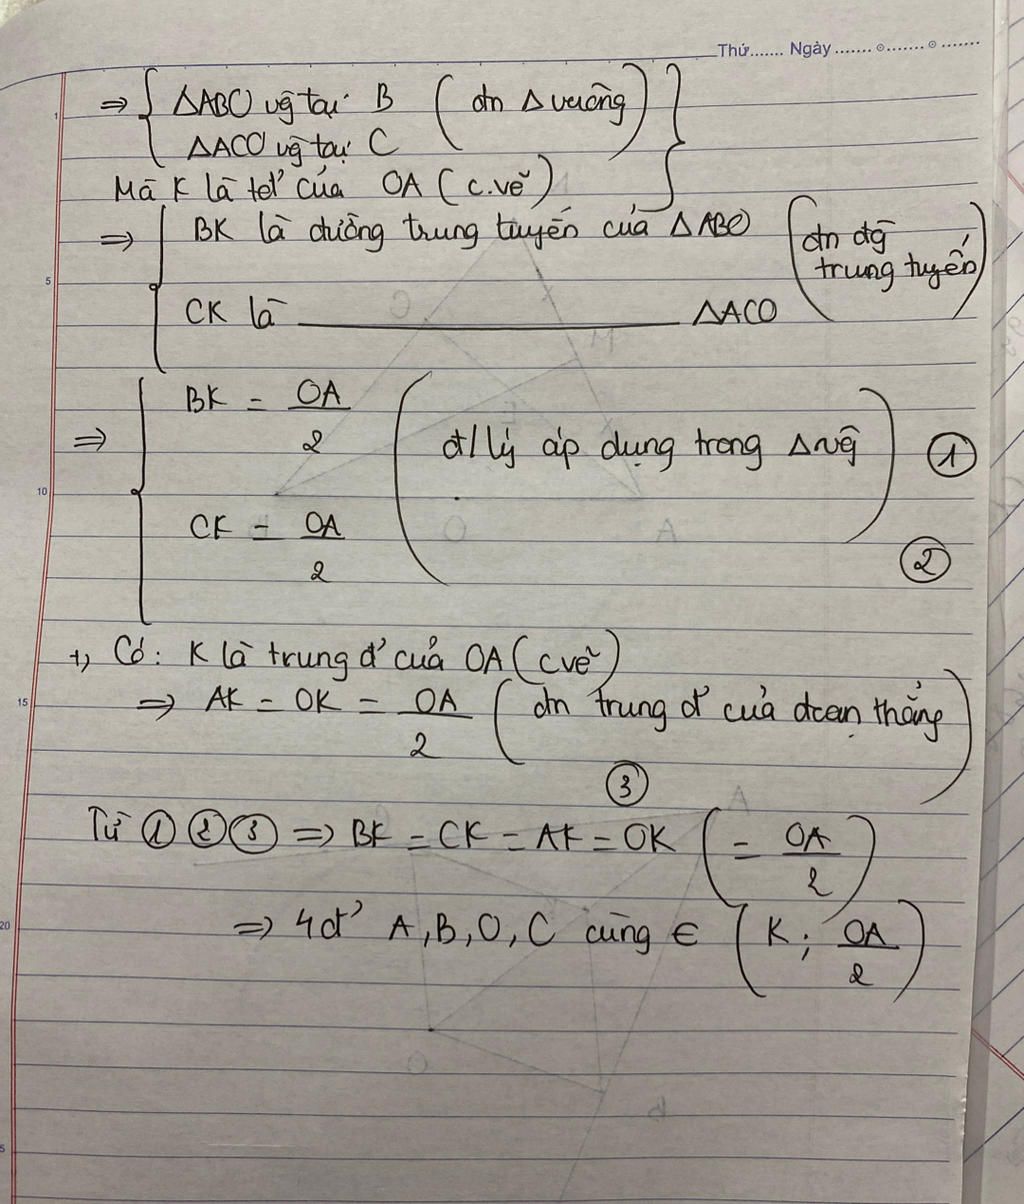 Thứ....... Ngày ....... ....... .......
⇒ { ΔABO vg̃ tại B ( đn Δ vuông ) }
ΔACO vg̃ tại C
Mà K là tđ' của OA ( c.vẽ )
⇒ { BK là đường trung tuyến của ΔABO ( đn đg̃ trung tuyến )
CK là ———————— ΔACO
⇒ { BK = OA/2 ( đ/lý áp dụng trong Δvg̃ ) ①
CK = OA/2 ②
+, Có: K là trung đ' của OA ( c.vẽ )
⇒ AK = OK = OA/2 ( đn trung đ' của đoạn thẳng ) ③
Từ ① ② ③ ⇒ BK = CK = AK = OK ( = OA/2 )
⇒ 4 đ' A, B, O, C cùng ∈ ( K ; OA/2 )
1
5
10
15
20
5